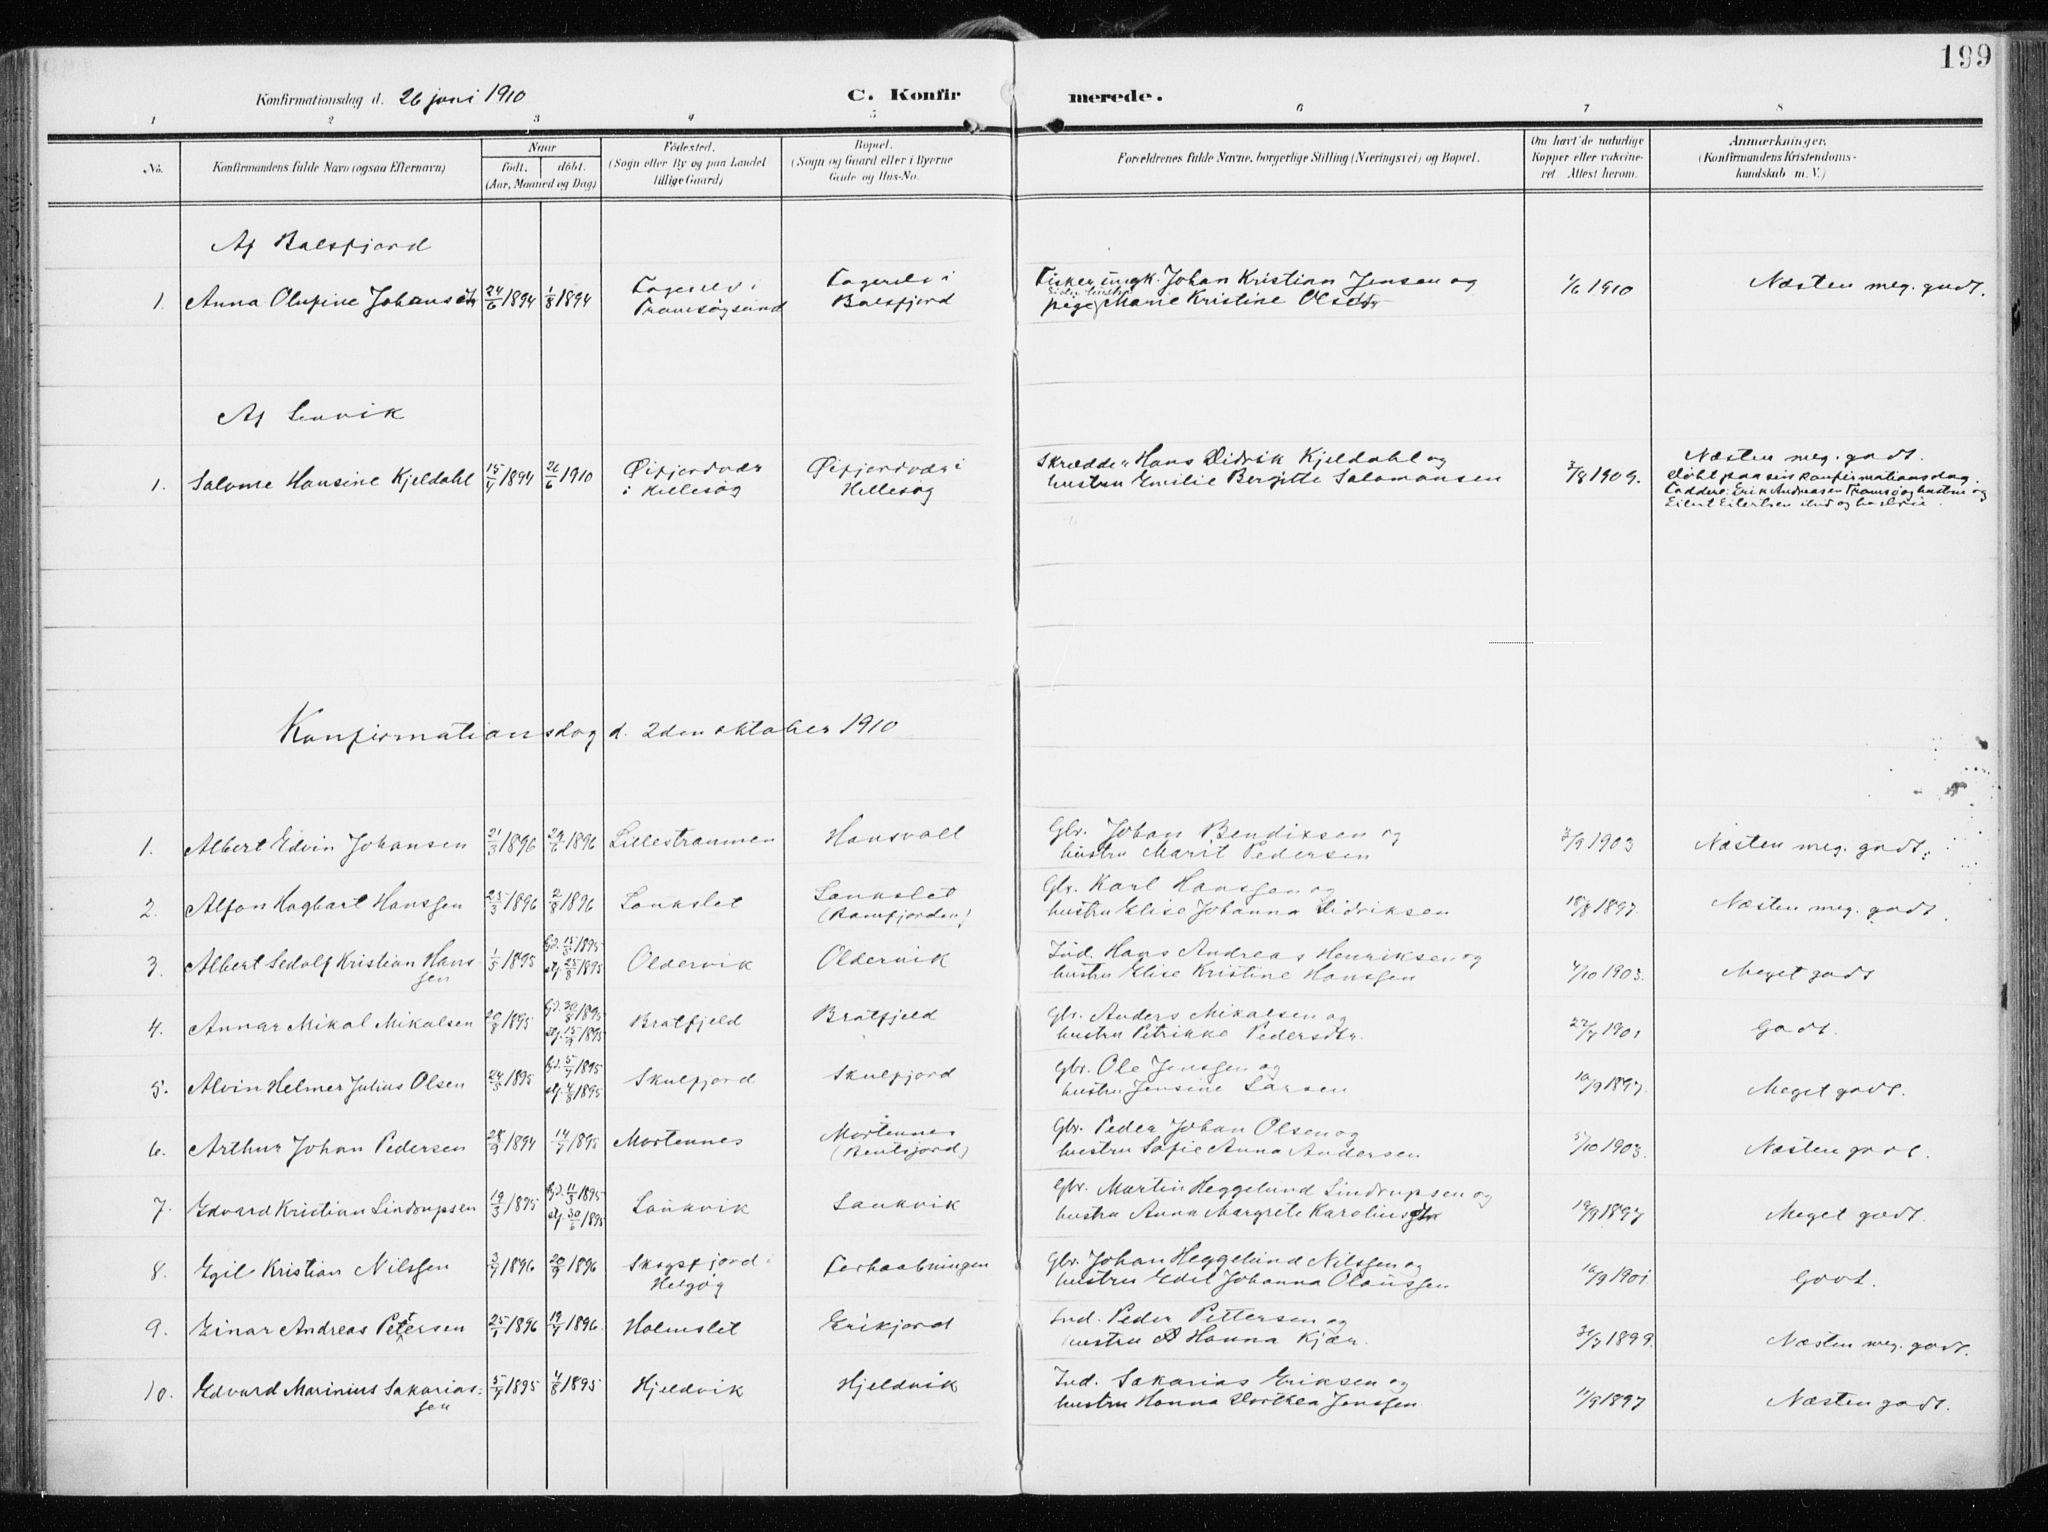 199
Konfirmationsdag d. 26 juni 1910
C. Konfirmerede.
1 2 3 4 5 6 7 8
No.
Konfirmandens fulde Navn (ogsaa Efternavn)
Naar
født. døbt.
(Aar, Maaned og Dag)
Fødested.
(Sogn eller By og paa Landet
tillige Gaard)
Bopæl.
(Sogn og Gaard eller i Byerne
Gade og Hus-No.
Forældrenes fulde Navne, borgerlige Stilling (Næringsvei) og Bopæl.
Om havt de naturlige
Kopper eller vakcine-
ret Attest herom.
Anmærkninger.
(Konfirmandens Kristendoms-
kundskab m. V.)
Af Balsfjord
1. Anna Olufine Johansdtr 24/6 1894 1/8 1894 Fagerelv i Tromsøysund Fagerelv i Balsfjord Fisker ungk. Johan Kristian Jensen og
pige Marie Kristine Olsdtr 1/6 1910 Næsten meg. godt.
Af Lenvik
1. Salome Hansine Kjeldahl 15/4 1894 26/6 1910 Øifjordvær i Hillesøy Øifjordvær i Hillesøy Skrædder Hans Didrik Kjeldahl og
hustru Emilie Bergitte Salomonsen 3/8 1909. Næsten meg. godt.
Døbt paa sin konfirmationsdag.
Faddere: Erik Andreasen Tromsø og hustru og
Eilert Eilertsen
Konfirmationsdag d. 2den oktober 1910
1. Albert Edvin Johansen 21/3 1896 29/6 1896 Lillestraumen Hansvoll Gbr. Johan Bendixsen og
hustru Marit Pedersen 3/9 1903 Næsten meg. godt.
2. Alfon Hagbart Hanssen 25/3 1896 2/8 1896 Lankslet Lankslet (Ramfjorden) Gbr. Karl Hanssen og
hustru Elise Johanna Didriksen 18/8 1897. Næsten meg. godt.
3. Albert Sedolf Kristian Hanssen 1/5 1895 hjd. 15/5 1895 stf. 25/8 1895 Oldervik Oldervik Ind. Hans Andreas Henriksen og
hustru Elise Kristine Hanssen 7/10 1903. Meget godt
4. Annar Mikal Mikalsen 20/8 1895 hjd. 30/8 1895 stf. 15/9 1895 Bratfjeld Bratfjeld Gbr. Anders Mikalsen og
hustru Petrikke Pedersdtr. 22/7 1901 Godt.
5. Alvin Helmer Julius Olsen 24/5 1895 hjd. 5/7 1895 stf. 4/8 1895 Skulfjord Skulfjord Gbr. Ole Jenssen og
hustru Jensine Larsen 10/9 1897. Meget godt.
6. Arthur Johan Pedersen 28/9 1894 14/7 1895 Mortennes Mortennes (Bentsjord) Gbr. Peder Johan Olsen og
hustru Sofie Anna Andersen 5/10 1903. Næsten godt.
7. Edvard Kristian Lindrupsen 19/3 1895 hjd. 11/5 1895 stf. 30/6 1895 Laukvik Laukvik Gbr. Martin Heggelund Lindrupsen og
hustru Anna Margrete Karoliusdtr 10/9 1897 Meget godt.
8. Egil Kristian Nilssen 3/7 1896 20/9 1896 Skogsfjord i Helgøy Forhaabningen Gbr. Johan Heggelund Nilssen og
hustru Edel Johanna Olaussen 16/9 1901 Godt.
9. Einar Andreas Pettersen 25/1 1896 19/7 1896. Holmslet Erikjord Ind. Peder Pettersen og
hustru Hanna Kjær. 31/7 1899. Næsten meg. godt.
10. Edvard Marinius Sakariassen 5/7 1895 4/8 1895 Hjeldvik Hjeldvik Ind. Sakarias Eriksen og
hustru Hanna Dorthea Jenssen. 11/9 1897 Næsten godt.